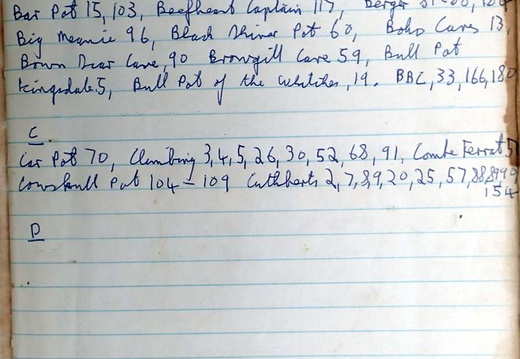 Bar Pot 15, 103, Beefheart Captain 117, Berger
Big Meanie 96, Black Shiver Pot 60, Boho Caves 13,
Brown Scar Cave, 90 Browgill Cave 59, Bull Pot
Kingsdale 5, Bull Pot of the Witches, 19. BBC, 33, 166, 180
C
Car Pot 70, Climbing 3, 4, 5, 26, 30, 52, 68, 91, Combe Ferrat 5
Cowskull Pot 104 – 109 Cuthberts 2, 7, 8, 9, 20, 25, 57, 88,
154
D